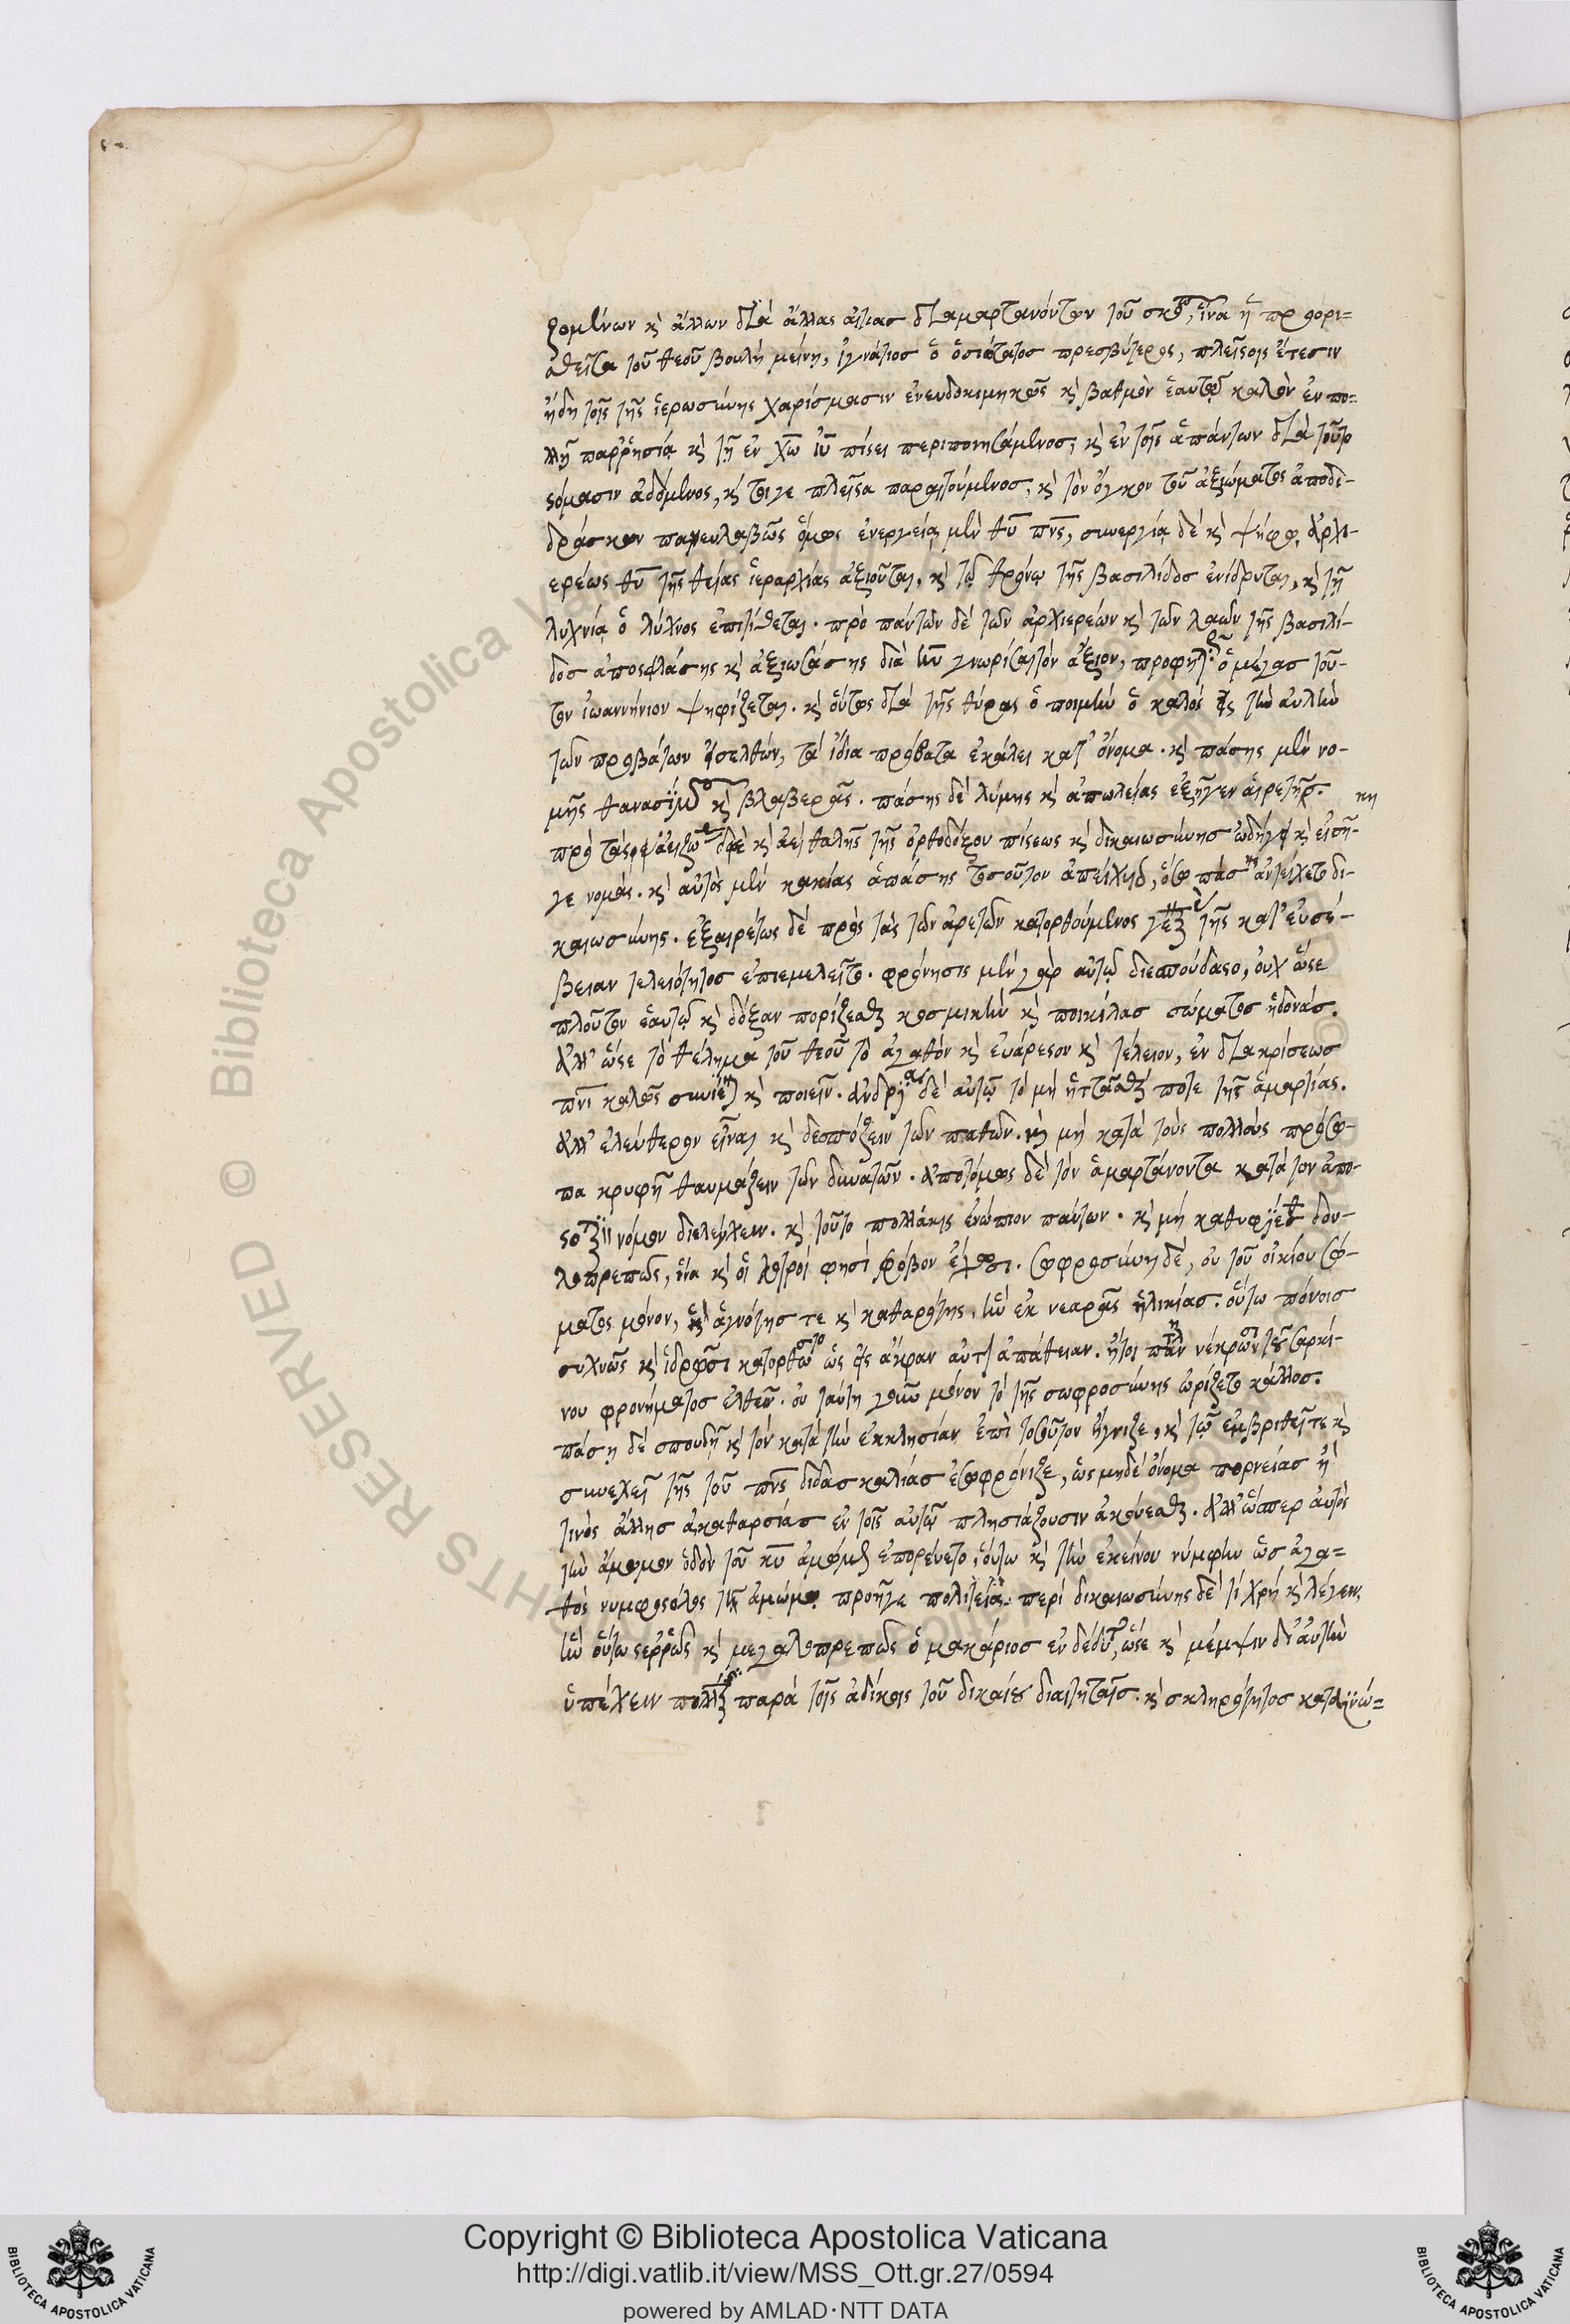 ζομένων κ̀ ἄλλων διὰ ἄλλας αἰτίας διαμαρτανόντων τοῦ σκοποῦ, ἵνα ἡ προορι=
σθεῖσα τοῦ θεοῦ βουλὴ μείνῃ, ἰγνάτιος ὁ ὁσιώτατος πρεσβύτερος, πλείστοις ἔτεσιν
ἤδη τοῖς τῆς ἱερωσύνης χαρίσμασιν ἐνευδοκιμηκὼς κ̀ βαθμὸν ἑαυτῷ καλὸν ἐν πο=
λλῇ παρρησίᾳ κ̀ τῇ ἐν χω ιυ πίστει περιποιησάμενος, κ̀ ἐν τοῖς ἁπάντων διὰ τοῦτο
στόμασιν ἀδόμενος, κ̀ τοι γε πλεῖστα παραιτούμενος, κ̀ τὸν ὄγκον τοῦ ἀξιώματος ἀποδι-
δράσκων πανευλαβῶς ὅμως ἐνεργείᾳ μὲν θυ πνς, συνεργίᾳ δὲ κ̀ ψήφῳ ἀρχι-
ερέως θυ τῆς θείας ἱεραρχίας ἀξιοῦται, κ̀ τῷ θρόνῳ τῆς βασιλίδος ἐνίδρυται, κ̀ τῇ
λυχνίᾳ ὁ λύχνος ἐπιτίθεται. πρὸ πάντων δὲ τῶν ἀρχιερέων κ̀ τῶν λαῶν τῆς βασιλί-
δος ἀποστελάσης κ̀ ἀξιωσάσης διὰ γνωρίσαι τὸν ἄξιον, προφητ ὁ μέγας τοῦ-
τον ἰωαννήνιον ψηφίζεται. κ̀ οὗτος διὰ τῆς θύρας ὁ ποιμὴν ὁ καλὸς εἰς τὴν αὐλὴν
τῶν προβάτων εἰσελθών, τὰ ἴδια πρόβατα ἐκάλει κατ' ὄνομα. κ̀ πάσης μὲν νο-
μῆς θανασίμου κ̀ βλαβερᾶς. πάσης δὲ λύμης κ̀ ἀπωλείας ἐξῆγεν
πρὸ κ̀ ἀειθαλῆς τῆς ὀρθοδόξου πίστεως κ̀ δικαιωσύνης ὡδήγει κ̀ εἰσῆ-
γε νομάς. κ̀ αὐτὸς μὲν κακίας ἁπάσης τοσοῦτον ἀπείχετο, ὅσῳ πάσης ἀντείχετο δι-
καιωσύνης. ἐξαιρέτως δὲ πρὸς τὰς τῶν ἀρετῶν κατορθούμενος τῆς κατ' εὐσέ-
βειαν τελειότητος ἐπιεμελεῖτο. φρόνησις μὲν γὰρ αὐτῷ διεσπούδαστο, οὐχ ὥστε
πλοῦτον ἑαυτῷ κ̀ δόξαν πορίζεσθαι κοσμικὴν κ̀ ποικίλας σώματος ἡδονάς.
ἀλλ' ὥστε τὸ θέλημα τοῦ θεοῦ τὸ ἀγαθὸν κ̀ εὐάρεστον κ̀ τέλειον, ἐν διακρίσεως
πνι καλῶς συνιέναι κ̀ ποιεῖν. ἀνδρίας δὲ αὐτῷ τὸ μὴ ἡττᾶσθαι ποτε τῆς ἁμαρτίας.
ἀλλ' ἐλεύθερον εἶναι κ̀ δεσπόζειν τῶν παθῶν. κ̀ μὴ κατὰ τοὺς πολλοὺς πρόσω-
πα κρυφῇ θαυμάζειν τῶν δυνατῶν. ἀποτόμως δὲ τὸν ἁμαρτάνοντα κατὰ τὸν ἀπο-
στολικὸν νόμον διελέγχειν. κ̀ τοῦτο πολλάκις ἐνώπιον πάντων. κ̀ μὴ καθυφίεσθαι δου-
λοπρεπῶς, ἵνα κ̀ οἱ λοιποί φησι φόβον ἔχωσι. σωφροσύνη δὲ, οὐ τοῦ οἰκίου σώ-
ματος μόνον, ἁγνότης τε κ̀ καθαρότης. ἣν ἐκ νεαρᾶς ἡλικίας. οὕτω πόνοις
συχνῶς κ̀ ἱδρῶσι κατορθώσατο ὡς εἰς ἄκραν αὐτ ἀπάθειαν. ἤτοι παν νέκρωσιν τοῦ σαρκί-
νου φρονήματος ἐλθεῖν. οὐ ταύτῃ γοῦν μόνον τὸ τῆς σωφροσύνης ὡρίζετο κάλλος.
πάσῃ δὲ σπουδῇ κ̀ τὸν κατὰ τὴν ἐκκλησίαν ἐπὶ τοσοῦτον ἥγνιζε, κ̀ τῷ ἐμβριθεῖ τε κ̀
συνεχεῖ τῆς τοῦ πνς διδασκαλίας ἐσωφρόνιζε, ὡς μηδὲ ὄνομα πορνείας ἢ
τινὸς ἄλλης ἀκαθαρσίας ἐν τοῖς αὐτῷ πλησιάζουσιν ἀκούεσθαι. ἀλλ' ὥσπερ αὐτὸς
τὴν ἄμωμον ὁδὸν τοῦ κυ ἀμώμως ἐπορεύετο, οὕτω κ̀ τὴν ἐκείνου νύμφην ὡς ἀγα=
θὸς νυμφοστόλος τῇ ἀμώμῳ προῆγε πολιτείᾳ. περὶ δικαιωσύνης δὲ τί χρὴ κ̀ λέγειν,
ἣν οὕτω στερρῶς κ̀ μεγαλοπρεπῶς ὁ μακάριος ἐνδέδυτο, ὥστε κ̀ μέμψιν δι' αὐτὴν
ὑπέχειν πολλάκις παρὰ τοῖς ἀδίκοις τοῦ δικαίου διαιτηταῖς. κ̀ σκληρότητος καταγινώ=
Copyright © Biblioteca Apostolica Vaticana
http://digi.vatlib.it/view/MSS_Ott.gr.27/0594
powered by AMLAD·NTT DATA